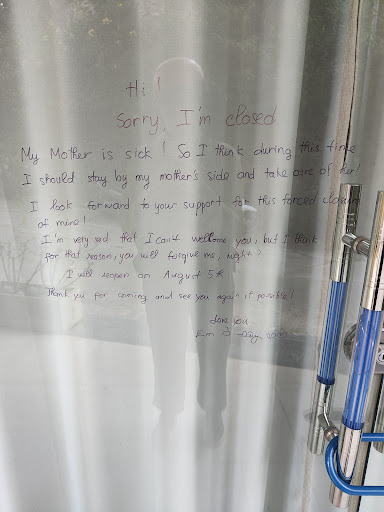 Hi!
Sorry, I'm closed
My Mother is sick! So I think during this time
I should stay by my mother's side and take care of her!
I look forward to your support for this forced closure
of mine!
I'm very sad that I can't welcome you, but I think
for that reason, you will forgive me, right?
I will reopen on August 5th
Thank you for coming and see you again if possible!
Love you
Em ở